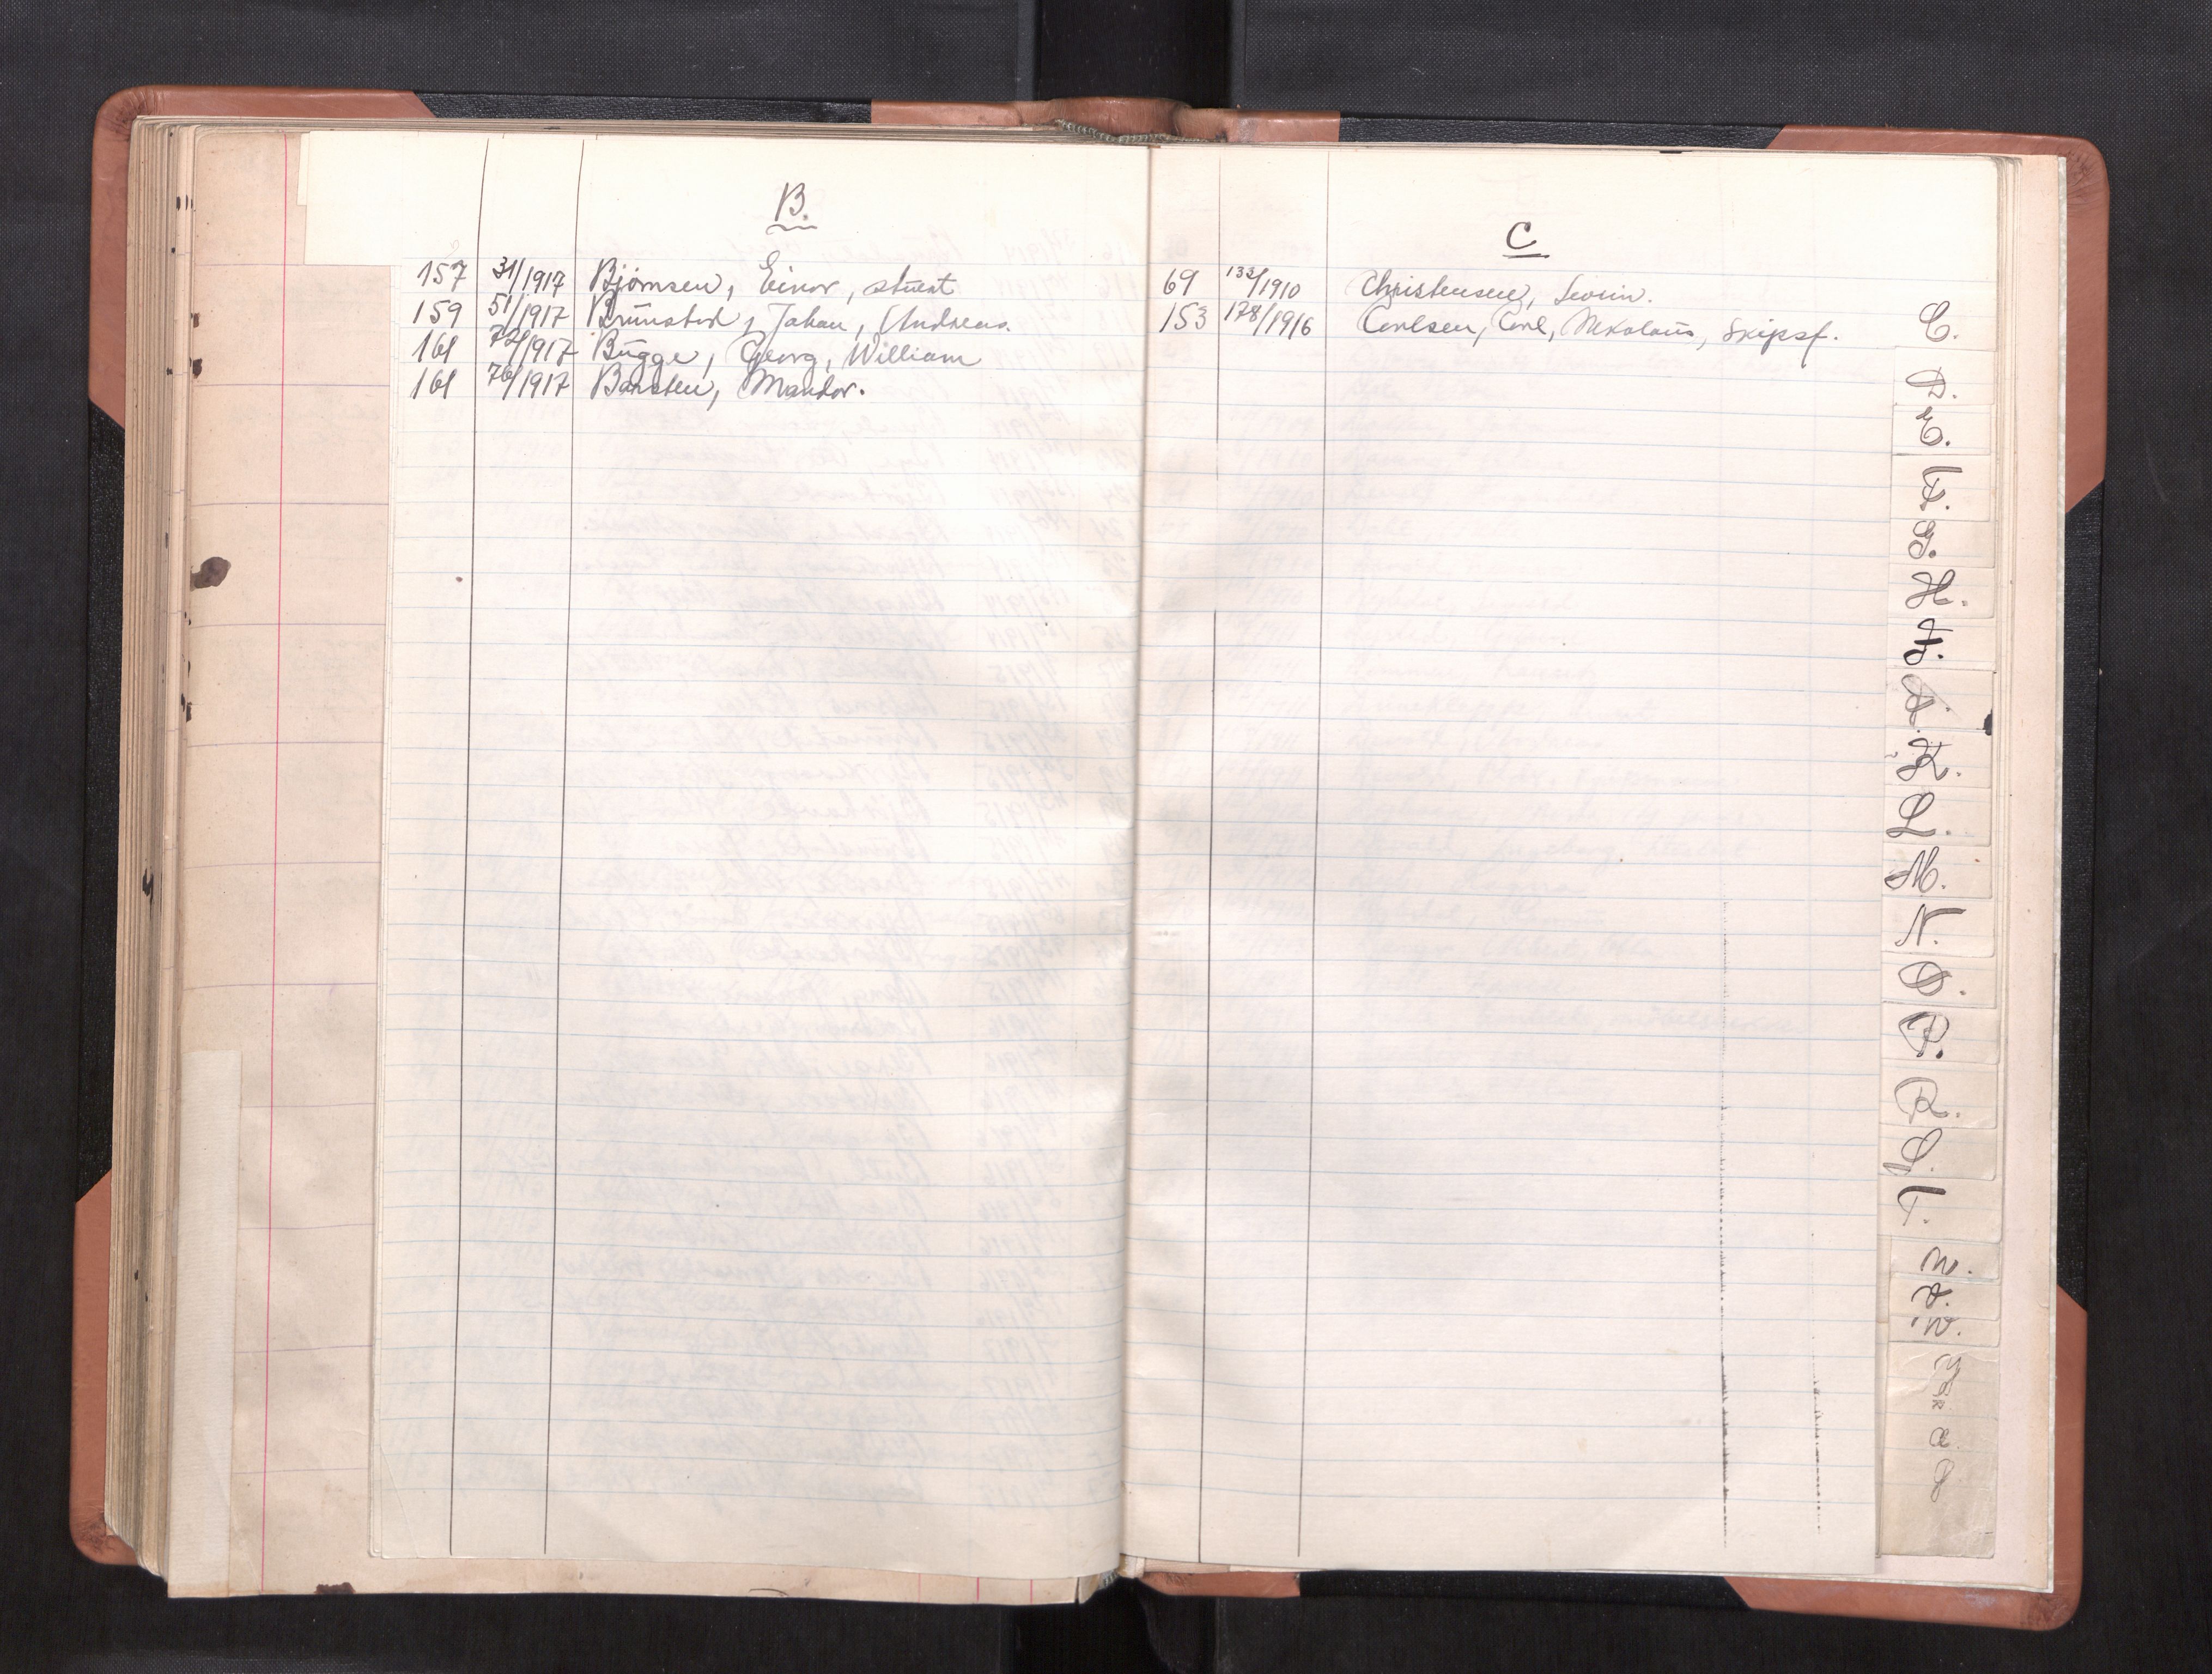 B.
157 31/1917 Bjørnsen, Einar, stuert
159 51/1917 Brünsted, Johan, Andreas.
161 72/1917 Bügge, Georg, William
161 76/1917 Barsten, Mandor.
C
69 133/1910 Christensen, Sevrin.
153 178/1916 Carlsen, Carl, Nikolaüs, Skipsf.
C.
D.
E.
F.
G.
H.
I.
J.
K.
L.
M.
N.
O.
P.
R.
S.
T.
U.
V.
W.
Y
Æ
Ø